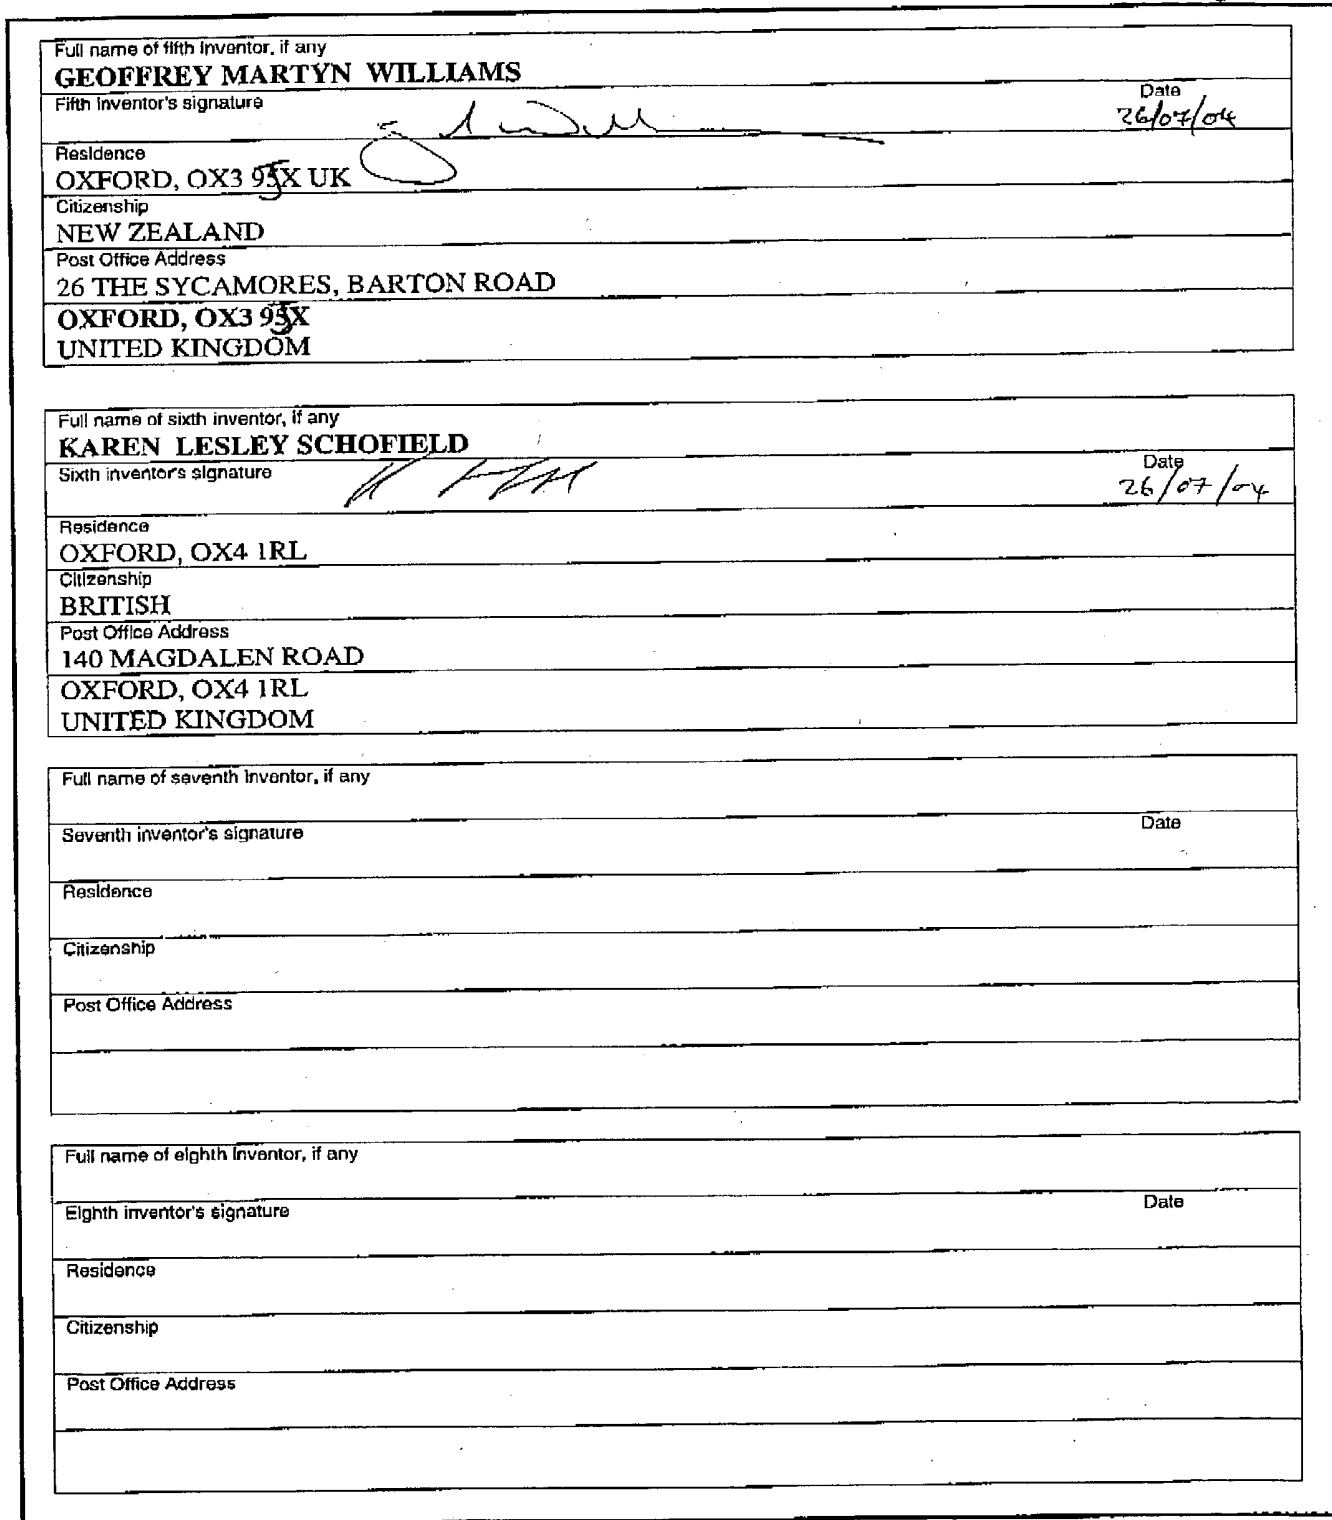 Full name of fifth inventor, if any
GEOFFREY MARTYN WILLIAMS
Fifth inventor's signature Date
26/07/04
Residence
OXFORD, OX3 9JX UK
Citizenship
NEW ZEALAND
Post Office Address
26 THE SYCAMORES, BARTON ROAD
OXFORD, OX3 9JX
UNITED KINGDOM
Full name of sixth inventor, if any
KAREN LESLEY SCHOFIELD
Sixth inventor's signature Date
26/07/04
Residence
OXFORD, OX4 1RL
Citizenship
BRITISH
Post Office Address
140 MAGDALEN ROAD
OXFORD, OX4 1RL
UNITED KINGDOM
Full name of seventh inventor, if any
Seventh inventor's signature Date
Residence
Citizenship
Post Office Address
Full name of eighth inventor, if any
Eighth inventor's signature Date
Residence
Citizenship
Post Office Address